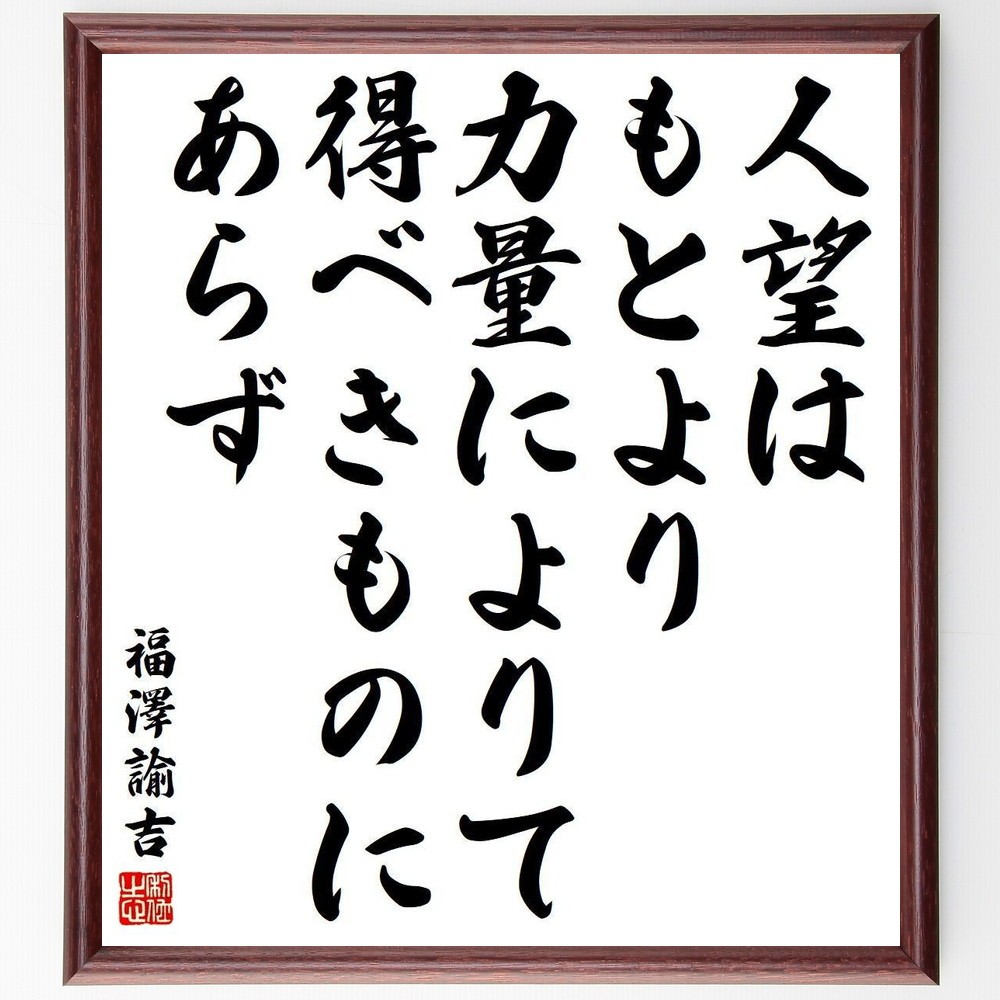 人望は
もとより
力量によりて
得べきものに
あらず
福澤諭吉